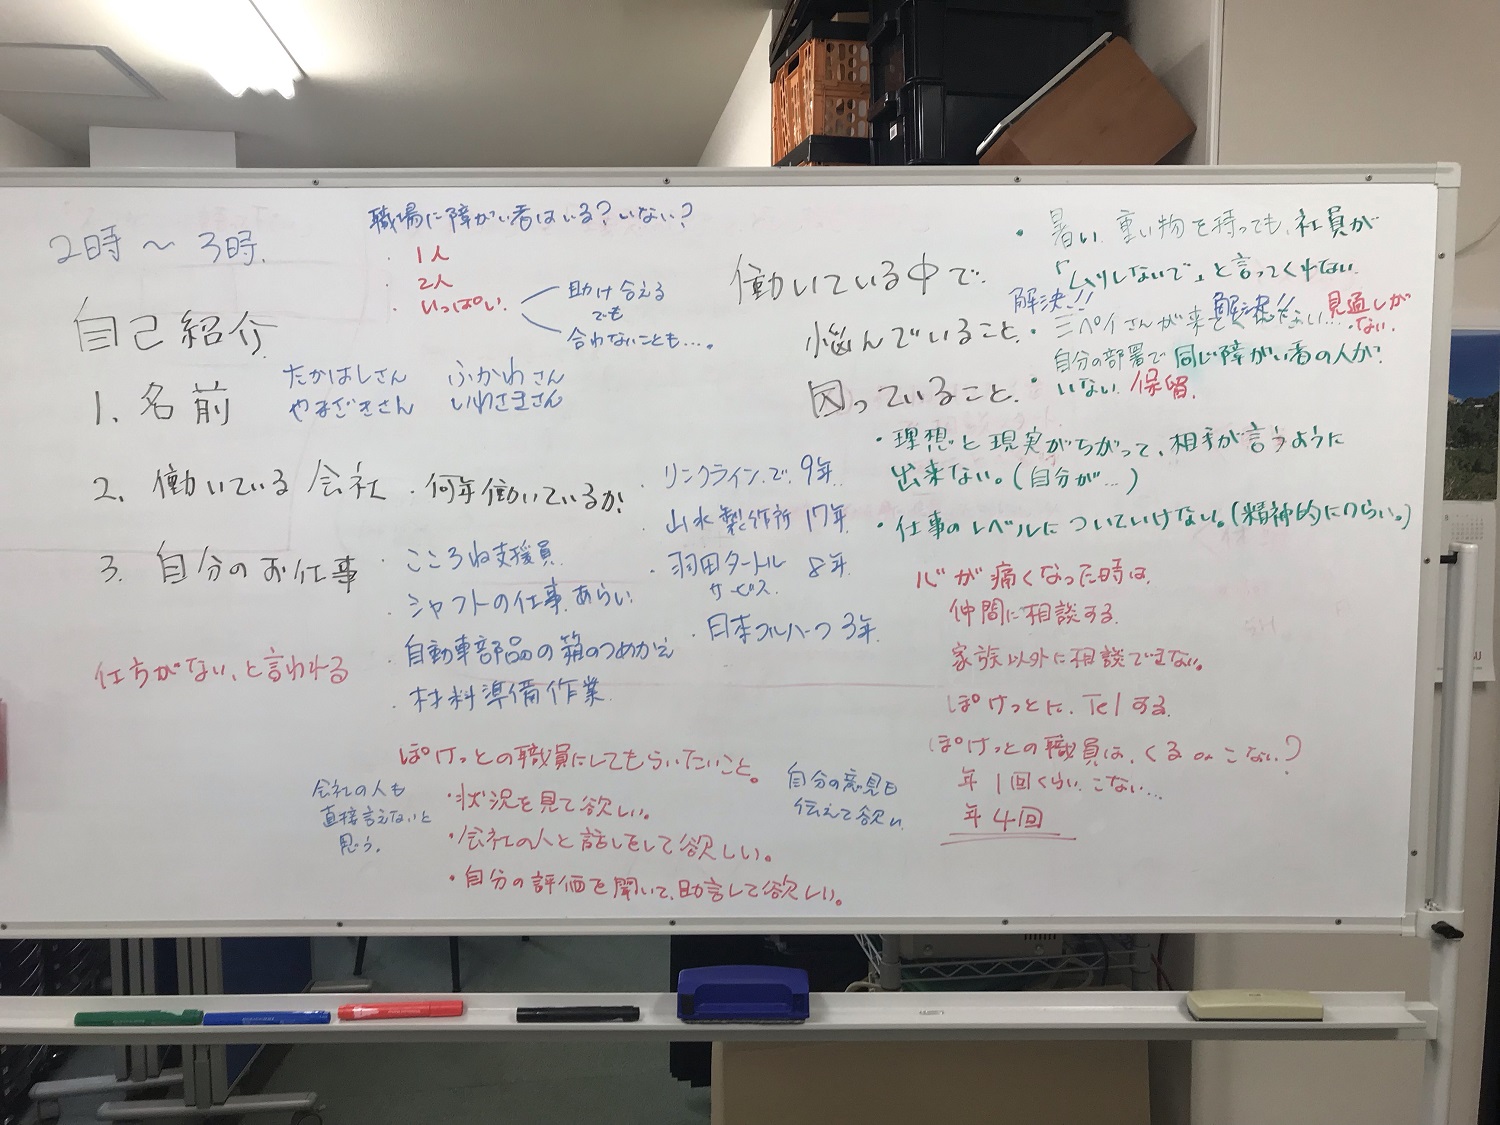 2時～3時.
自己紹介
1. 名前
たかはしさん ふかわさん
やまざきさん いわさきさん
2. 働いている会社・何年働いているか
・リンクラインで 9年
・山水製作所 17年
・羽田タートル 8年
サービス
・日本フルハーフ 3年
3. 自分のお仕事
・こころね支援員
・シャフトの仕事.あらい
・自動車部品の箱のつめかえ
・材料準備作業
仕方がない、と言われる
職場に障がい者はいる?いない?
・1人
・2人
・いっぱい
助け合える
でも
合わないことも…。
働いている中で
悩んでいること.
困っていること.
・暑い、重い物を持っても、社員が
「ムリしないで」と言ってくれない
解決!!
・三ペイさんが来
見通しが
ない
・自分の部署で同じ障がい者の人が
いない 保留.
・理想と現実がちがって、相手が言うように
出来ない。(自分が…)
・仕事のレベルについていけない。(精神的につらい。)
心が痛くなった時は
仲間に相談する
家族以外に相談できない。
ぽけっとに Telする
ぽけっとの職員は、くるorこない?
年1回くらい こない…
年4回
ぽけっとの職員にしてもらいたいこと。
・状況を見て欲しい。
・会社の人と話しをして欲しい。
・自分の評価を聞いて、助言して欲しい。
会社の人も
直接言えないと
思う。
自分の意見も
伝えて欲しい